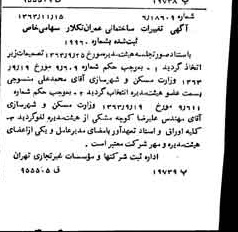 شماره ۶/۱۸۶۰۹ ۱۳۶۳/۱۱/۱۵
آگهی تغییرات ساختمانی عمران تکلار سهامی خاص
ثبت شده بشماره ۱۹۹۶۰
باستناد صورتجلسه هیئت مدیره مورخ ۱۳۶۳/۹/۲۵ تصمیمات زیر
اتخاذ گردید ۱ - بموجب حکم شماره ۹۶۰۹ مورخ
۱۳۶۳ وزارت مسکن و شهرسازی آقای محمدعلی منسوجی
بسمت عضو هیئت مدیره انتخاب گردید ۲ - بموجب حکم شماره
۹۶۱۱ مورخ ۱۳۶۳/۹/۱۹ وزارت مسکن و شهرسازی
آقای مهندس علیرضا کوچه مشکی از هیئت مدیره لغو گردید ۳ -
کلیه اوراق و اسناد تعهدآور بامضای مدیرعامل و یکی از اعضای
هیئت مدیره و مهر شرکت معتبر است .
اداره ثبت شرکتها و مؤسسات غیرتجاری تهران
پ ۱۹۷۳۹ ق ۹۵۵۰۵